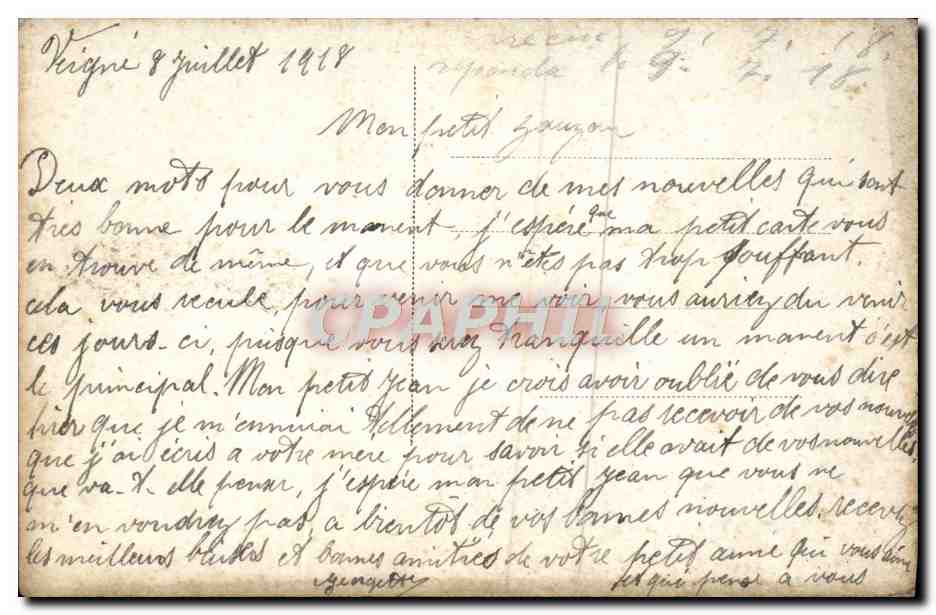 Veigné 8 Juillet 1918
recu 9. 7. 18.
reponda le 9. 7. 18.
Mon petit
Deux mots pour vous donner de mes nouvelles qui sont
très bonne pour le moment, j'espére que ma petit carte vous
en trouve de même, et que vous n'êtes pas trop souffant.
cela vous recule pour venir me voir vous auriez du venir
ces jours-ci, puisque vous tranquille un moment c'est
le principal. Mon petit Jean je crois avoir oublié de vous dire
hier que je m'ennuiai tellement de ne pas recevoir de vos nouvelles,
que j'ai écris a votre mère pour savoir si elle avait de vos nouvelles
que va-t-elle penser, j'espére mon petit Jean que vous ne
m'en voudrez pas, a bientôt de vos bonnes nouvelles. recevez
les meilleurs baisers et bonnes amitiés de votre petit amie qui vous aime
Georgette et qui pense a vous
CPAPHIL